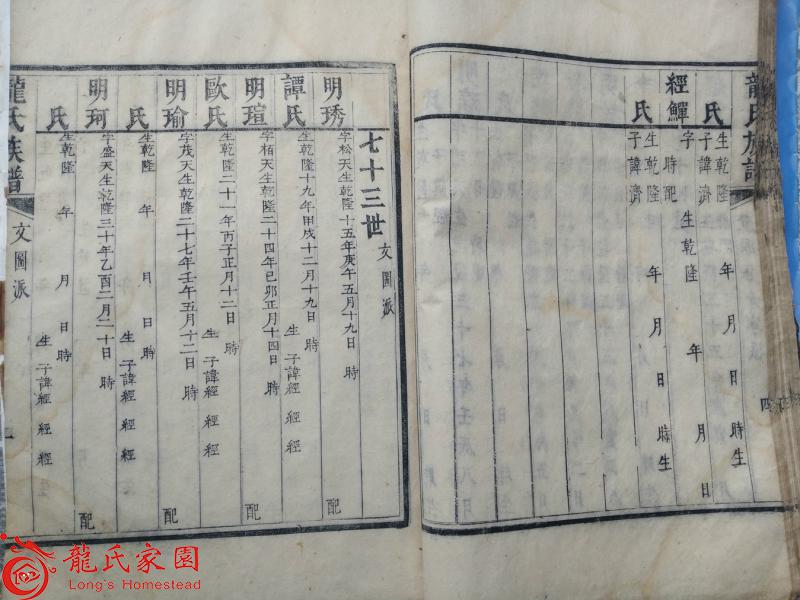 龍氏族譜
氏 生乾隆 年 月 日 時生
子諱濟
經鱓 字 生乾隆 年 月 日
時配
氏 生乾隆 年 月 日 時生
子諱濟
七十三世 文圖派
明琇 字松天生乾隆十五年庚午五月十九日 時 配
譚氏 生乾隆十九年甲戌十二月十九日 時 生 子諱經 經 經
明瑄 字栢天生乾隆二十四年已卯正月十四日 時 配
歐氏 生乾隆二十一年丙子正月十二日 時 生 子諱經 經 經
明瑜 字茂天生乾隆二十七年壬午五月十二日 時 配
氏 生乾隆 年 月 日 時 生 子諱經 經 經
明珂 字盛天生乾隆三十年乙酉二月二十日 時 配
氏 生乾隆 年 月 日 時 生 子諱經 經 經
龍氏族譜 文圖派
龍氏家園
Long's Homestead